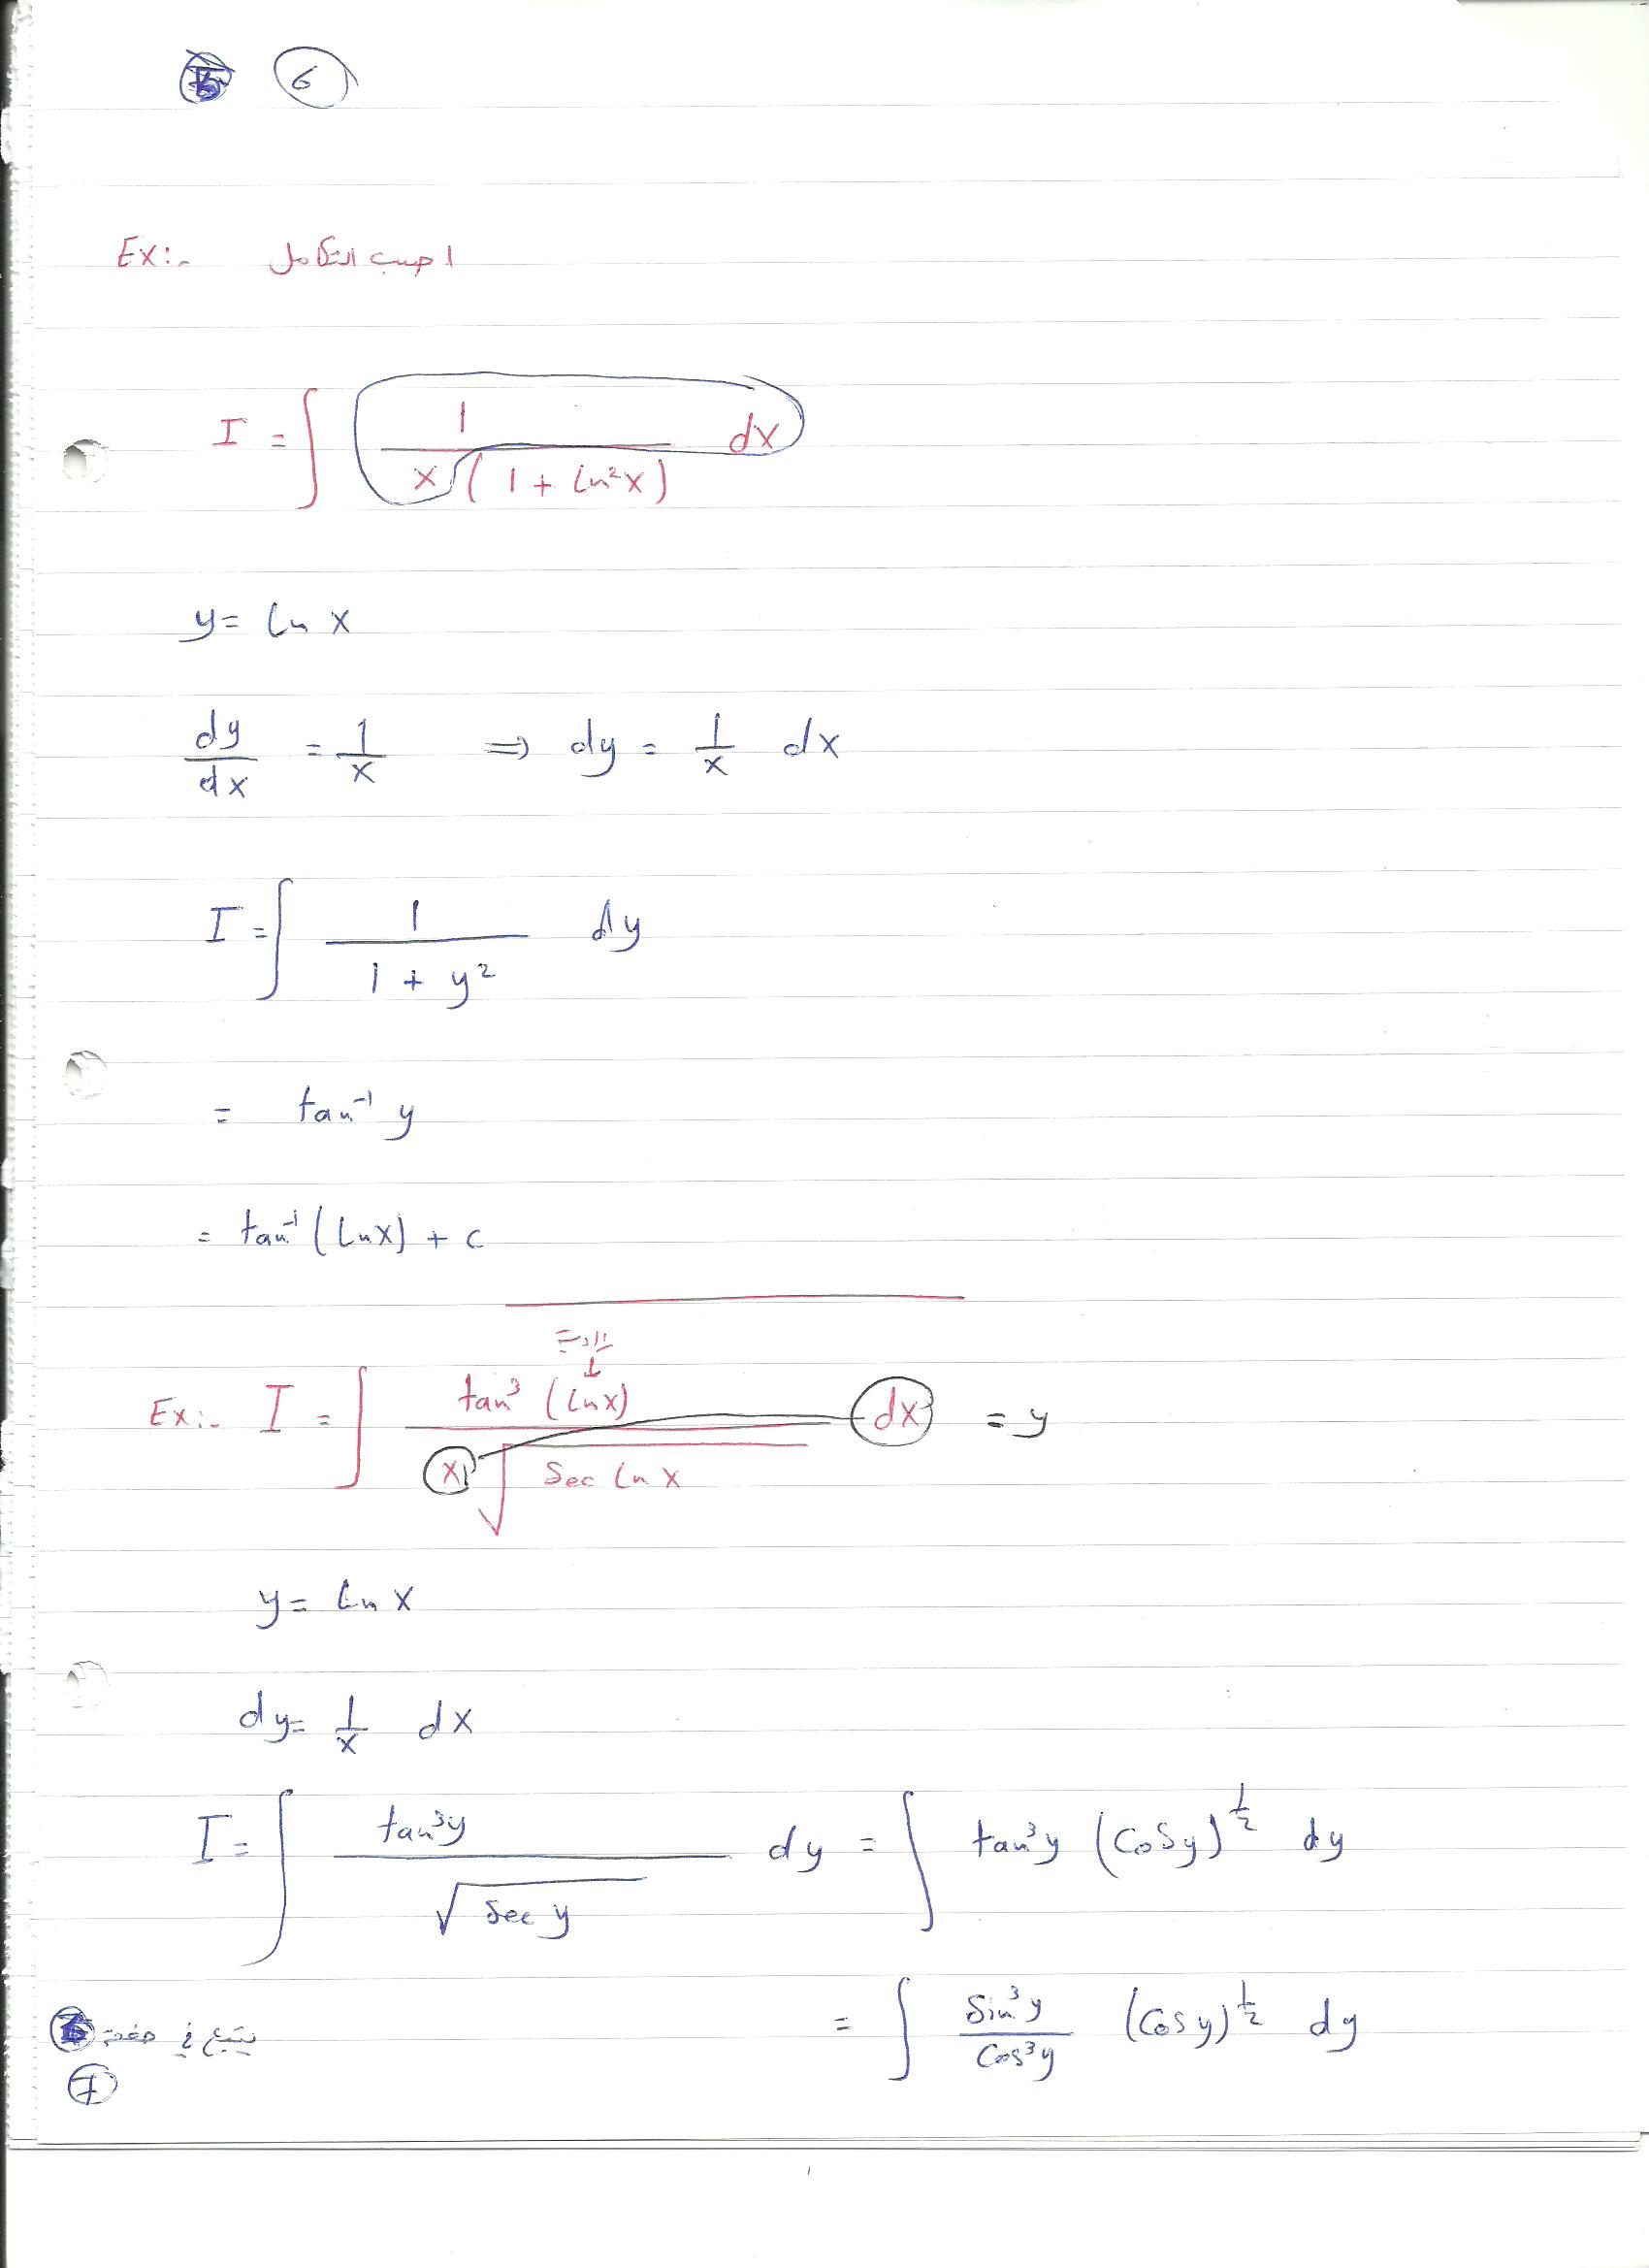 6
Ex:- احسب التكامل
I = ∫ 1 / x(1 + ln²x) dx
y = ln x
dy/dx = 1/x ⇒ dy = 1/x dx
I = ∫ 1 / 1 + y² dy
= tan⁻¹ y
= tan⁻¹ (ln x) + c
زاوية
↓
Ex:- I = ∫ tan³ (ln x) / x √sec ln x dx = y
y = ln x
dy = 1/x dx
I = ∫ tan³y / √sec y dy = ∫ tan³y (cos y)^½ dy
= ∫ sin³y / cos³y (cos y)^½ dy
يتبع في صفحة
7